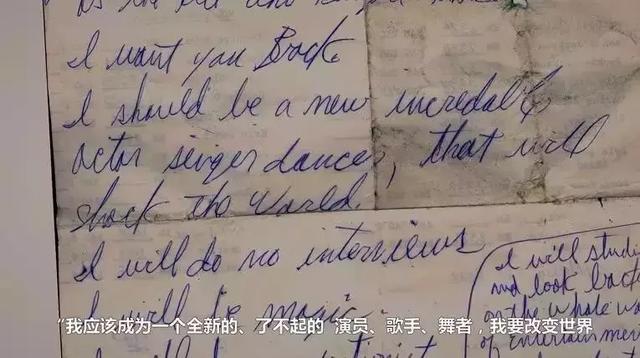 I want you Back
I should be a new incredable
actor singer dancer, that will
shock the world.
I will do no interviews
I will be magic.
I will studi
and look back
on the whole wo
of entertainmen
“我应该成为一个全新的、了不起的 演员、歌手、舞者，我要改变世界